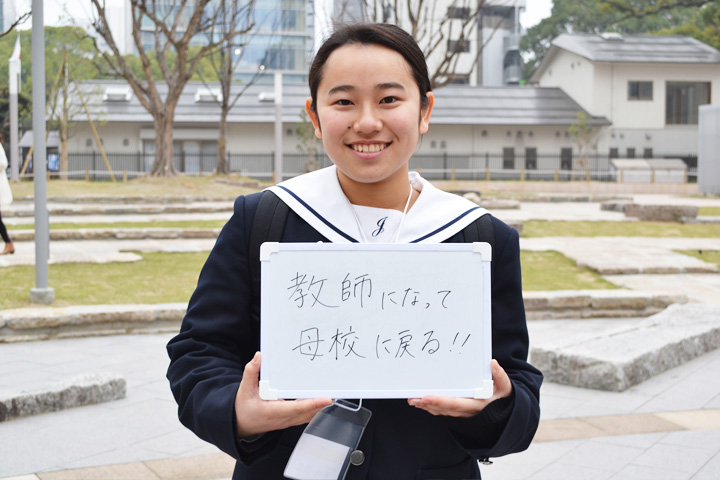 教師になって
母校に戻る!!
J